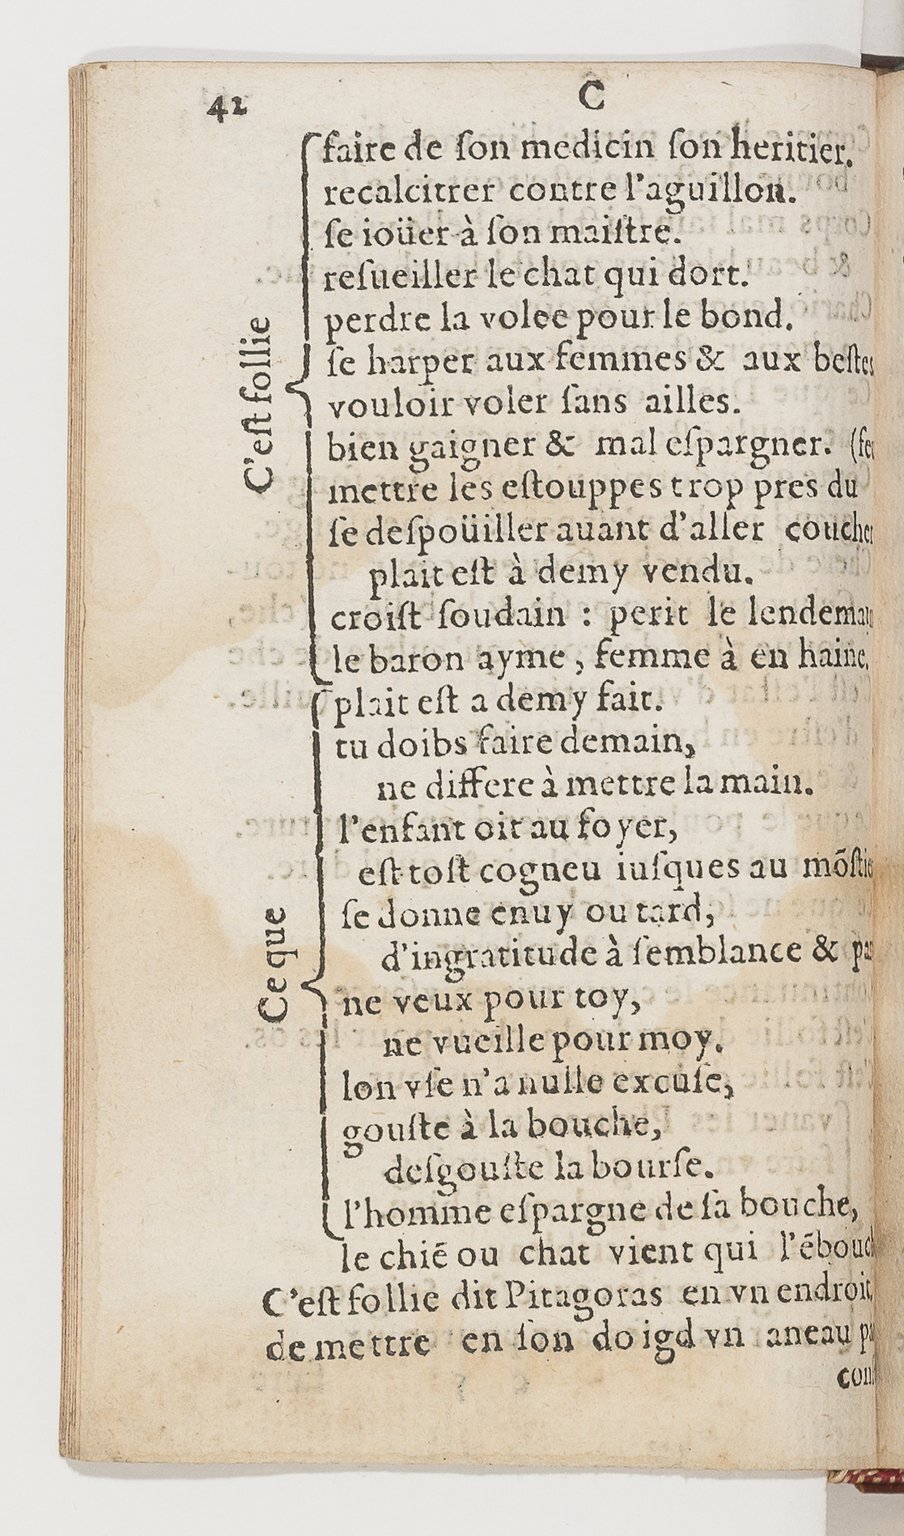 42
C
C'eſt follie
faire de ſon medicin ſon heritier.
recalcitrer contre l'aguillon.
ſe ioüer à ſon maiſtre.
reſueiller le chat qui dort.
perdre la volee pour le bond.
ſe harper aux femmes & aux beſtes
vouloir voler ſans ailles.
bien gaigner & mal eſpargner. (feu
mettre les eſtouppes trop pres du
ſe deſpoüiller auant d'aller coucher
plait eſt à demy vendu.
croiſt ſoudain : perit le lendemain
le baron ayme, femme à en haine.
Ce que
plait eſt a demy fait.
tu doibs faire demain,
ne differe à mettre la main.
l'enfant oit au foyer,
eſt toſt cogneu iuſques au mõſtie
ſe donne enuy ou tard,
d'ingratitude à ſemblance &
ne veux pour toy,
ne vueille pour moy.
lon vſe n'a nulle excuſe,
gouſte à la bouche,
deſgouſte la bourſe.
l'homme eſpargne de ſa bouche,
le chiẽ ou chat vient qui l'ẽbouc
C'eſt follie dit Pitagoras en vn endroit,
de mettre en ſon doigd vn aneau
con